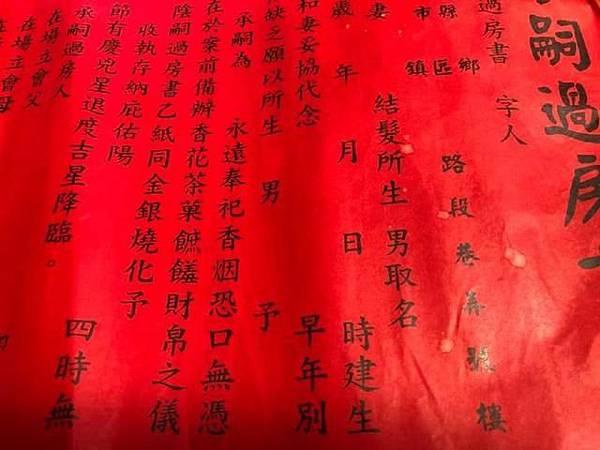 嗣過房
過房書 字人
市縣 鎮區鄉 路段巷弄號樓
妻 結髮所生 男取名
歲 年 月 日 時建生
和妻妥協代念 早年別
缺之願以所生 男 予
承嗣為 永遠奉祀香烟恐口無憑
在於案前備辦香花茶菓 財帛之儀
陰嗣過房書乙紙同金銀燒化予
收執存納庇佑陽
節有慶兇星退度吉星降臨。 四時無
承嗣過房人
在場立會父
在場立會母